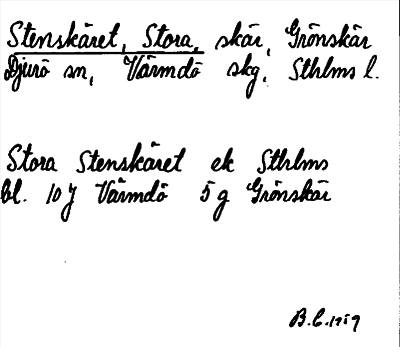 Stenskäret, Stora, skär, Grönskär
Djurö sn, Värmdö skg, Sthlms l.
Stora Stenskäret ek Sthlms
bl. 10 J Värmdö 5 g Grönskär
B.C. 1959